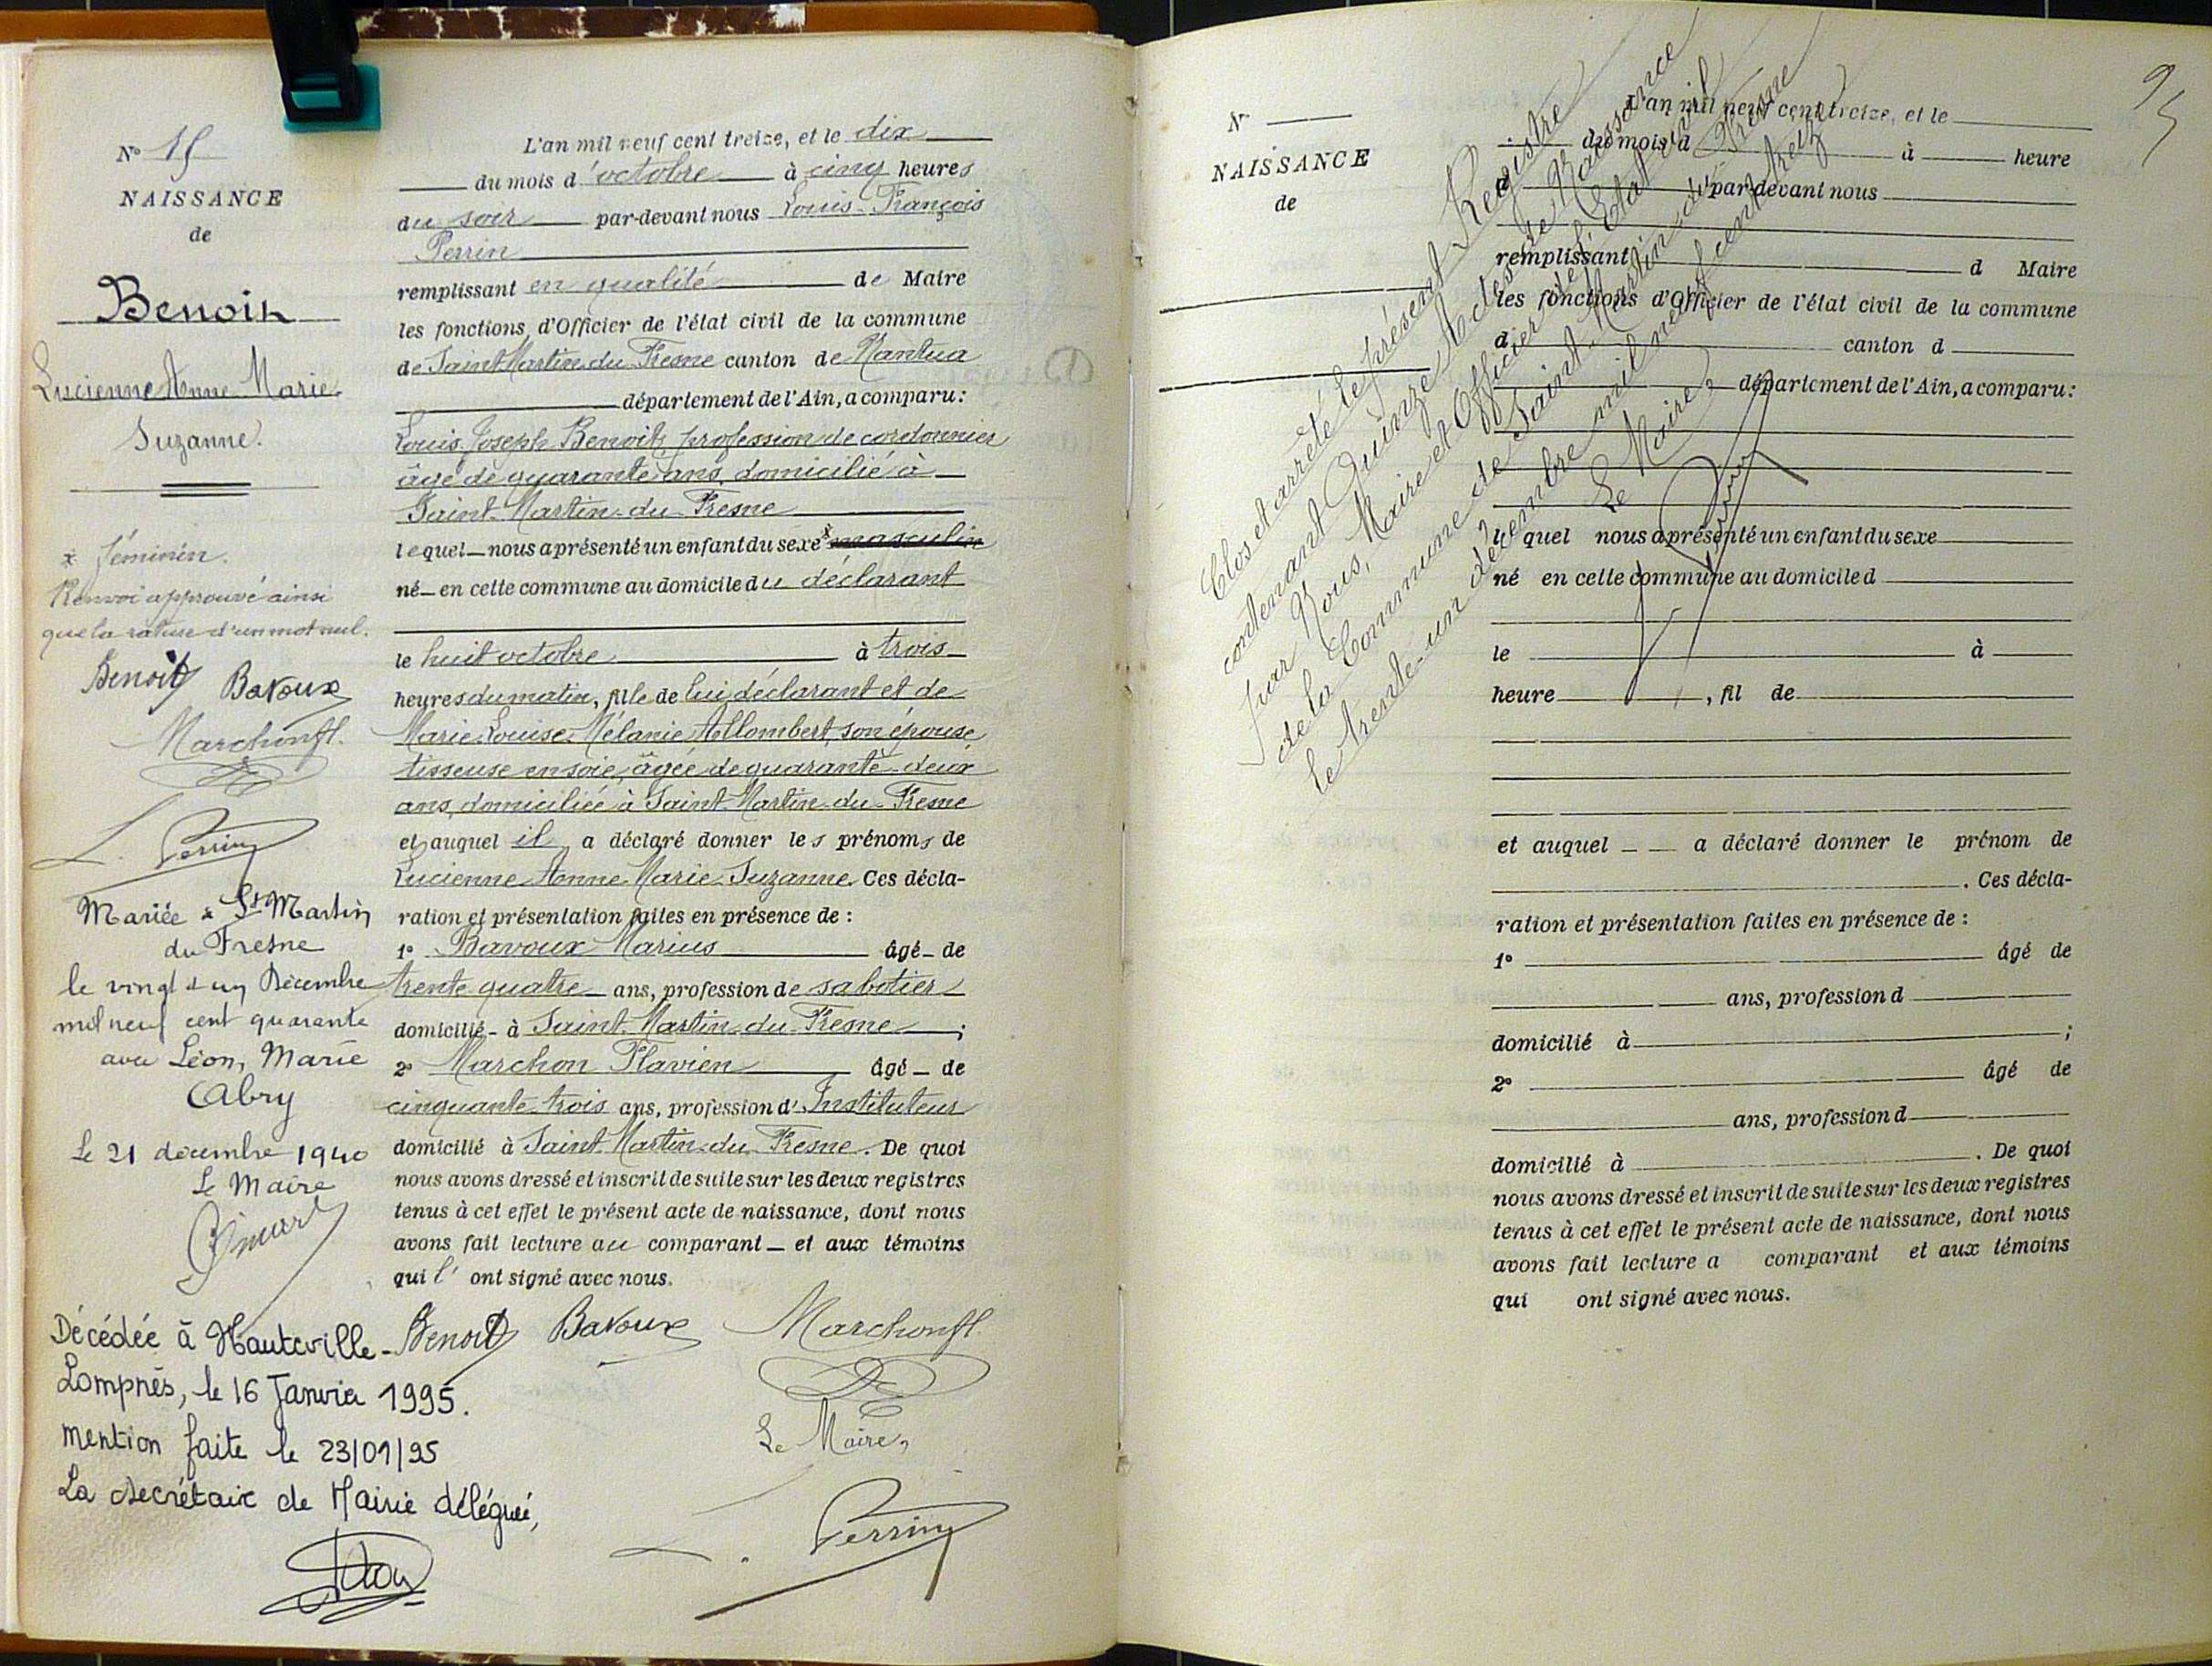 N° 15
NAISSANCE
de
Benoit
Lucienne Anne Marie
Suzanne.
x féminin.
Renvoi approuvé ainsi
que la rature d'un mot nul.
Benoit Bavoux
Marchon fl.
L. Perrin
Mariée à St Martin
du Fresne
le vingt et un Décembre
mil neuf cent quarante
avec Léon, Marie
Abry
Le 21 décembre 1940
Le Maire
Décédée à Hauteville-
Lompnès, le 16 Janvier 1995.
mention faite le 23/01/95
La secrétaire de Mairie délégué,
L'an mil neuf cent treize, et le dix
du mois d'octobre à cinq heures
du soir par-devant nous Louis-François
Perrin
remplissant en qualité de Maire
les fonctions d'Officier de l'état civil de la commune
de Saint-Martin-du-Fresne canton de Nantua
département de l'Ain, a comparu :
Louis Joseph Benoit, profession de cordonnier
âgé de quarante ans, domicilié à
Saint-Martin-du-Fresne
lequel nous a présenté un enfant du sexe x masculin
né en cette commune au domicile du déclarant
le huit octobre à trois
heures du matin, fille de lui déclarant et de
Marie-Louise-Mélanie Allombert, son épouse,
tisseuse en soie, âgée de quarante-deux
ans, domiciliée à Saint-Martin-du-Fresne
et auquel il a déclaré donner les prénoms de
Lucienne Anne Marie Suzanne. Ces décla-
ration et présentation faites en présence de :
1° Bavoux Marius âgé de
trente quatre ans, profession de sabotier
domicilié à Saint-Martin-du-Fresne ;
2° Marchon Flavien âgé de
cinquante-trois ans, profession d'Instituteur
domicilié à Saint-Martin-du-Fresne. De quoi
nous avons dressé et inscrit de suite sur les deux registres
tenus à cet effet le présent acte de naissance, dont nous
avons fait lecture au comparant et aux témoins
qui l' ont signé avec nous.
Benoit Bavoux Marchon fl.
Le Maire,
L. Perrin
N°
NAISSANCE
de
Clos et arrêté le présent Registre
contenant Quinze Actes de Naissance
par Nous, Maire et Officier de l'État civil
de la Commune de Saint-Martin-du-Fresne
le trente-un décembre mil neuf cent treize
Le Maire,
L'an mil neuf cent treize, et le
du mois d à heure
d par-devant nous
remplissant d Maire
les fonctions d'Officier de l'état civil de la commune
d canton d
département de l'Ain, a comparu :
l quel nous a présenté un enfant du sexe
né en cette commune au domicile d
le à
heure , fil de
et auquel a déclaré donner le prénom de
. Ces décla-
ration et présentation faites en présence de :
1° âgé de
ans, profession d
domicilié à ;
2° âgé de
ans, profession d
domicilié à . De quoi
nous avons dressé et inscrit de suite sur les deux registres
tenus à cet effet le présent acte de naissance, dont nous
avons fait lecture a comparant et aux témoins
qui ont signé avec nous.